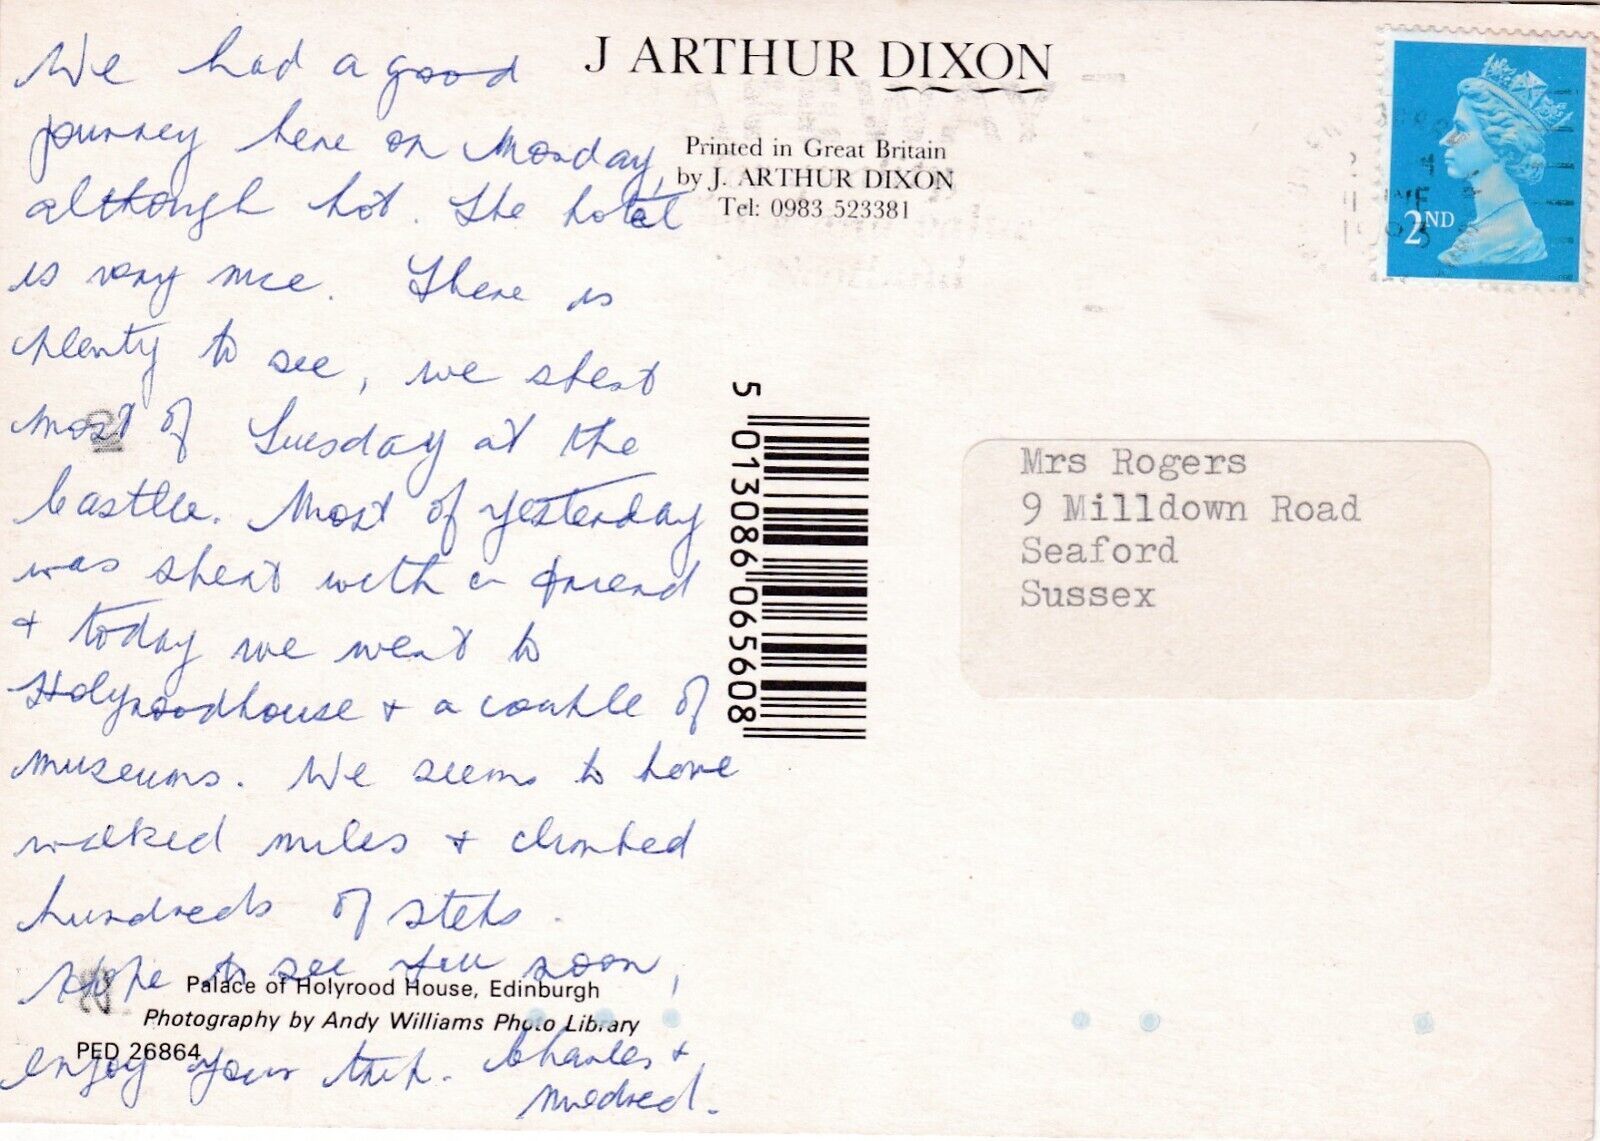 We had a good
journey here on Monday,
although hot. The hotel
is very nice. There is
plenty to see, we spent
most of Tuesday at the
Castle. Most of yesterday
was spent with a friend
+ today we went to
Holyroodhouse + a couple of
museums. We seems to have
walked miles + climbed
hundreds of steps.
Hope to see you soon,
enjoy your trip. Charles +
Mildred.
J ARTHUR DIXON
Printed in Great Britain
by J. ARTHUR DIXON
Tel: 0983 523381
2ND
5 013086 065608
Mrs Rogers
9 Milldown Road
Seaford
Sussex
Palace of Holyrood House, Edinburgh
Photography by Andy Williams Photo Library
PED 26864